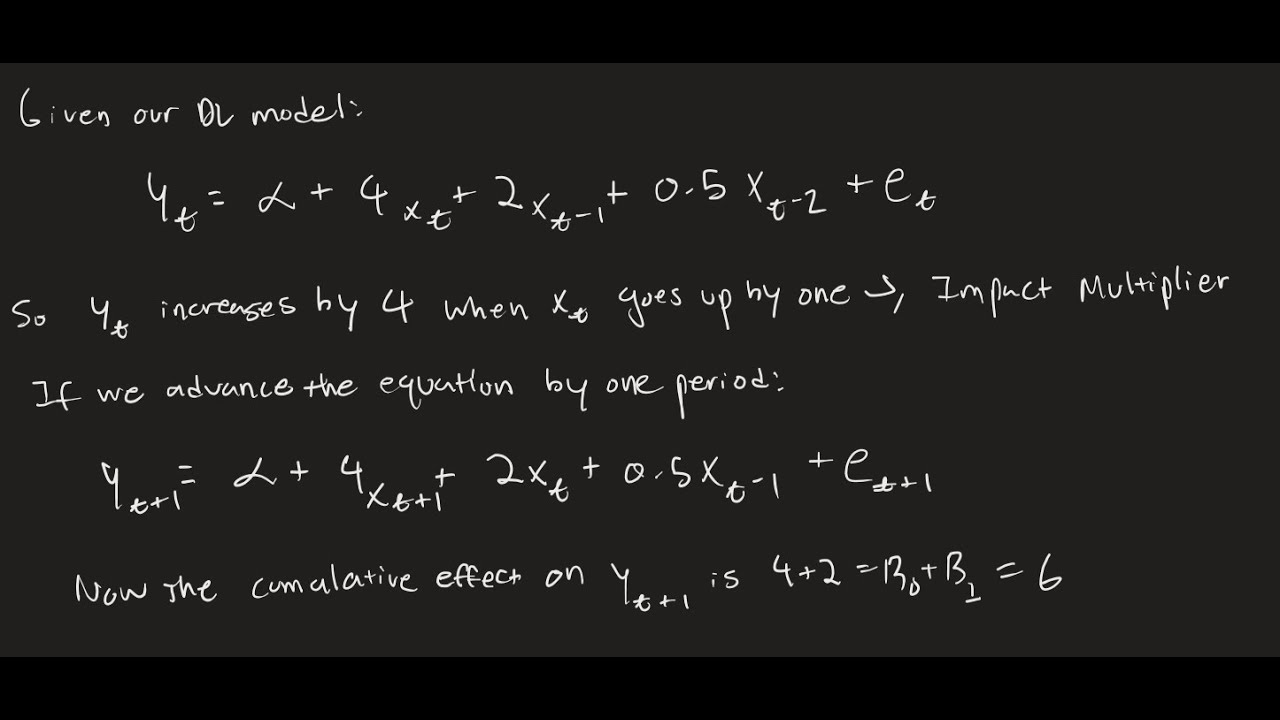 Given our DL model:
y_t = α + 4x_t + 2x_{t-1} + 0.5x_{t-2} + e_t
So y_t increases by 4 when x_t goes up by one →, Impact Multiplier
If we advance the equation by one period:
y_{t+1} = α + 4x_{t+1} + 2x_t + 0.5x_{t-1} + e_{t+1}
Now the cumalative effect on y_{t+1} is 4+2 = B_0 + B_1 = 6